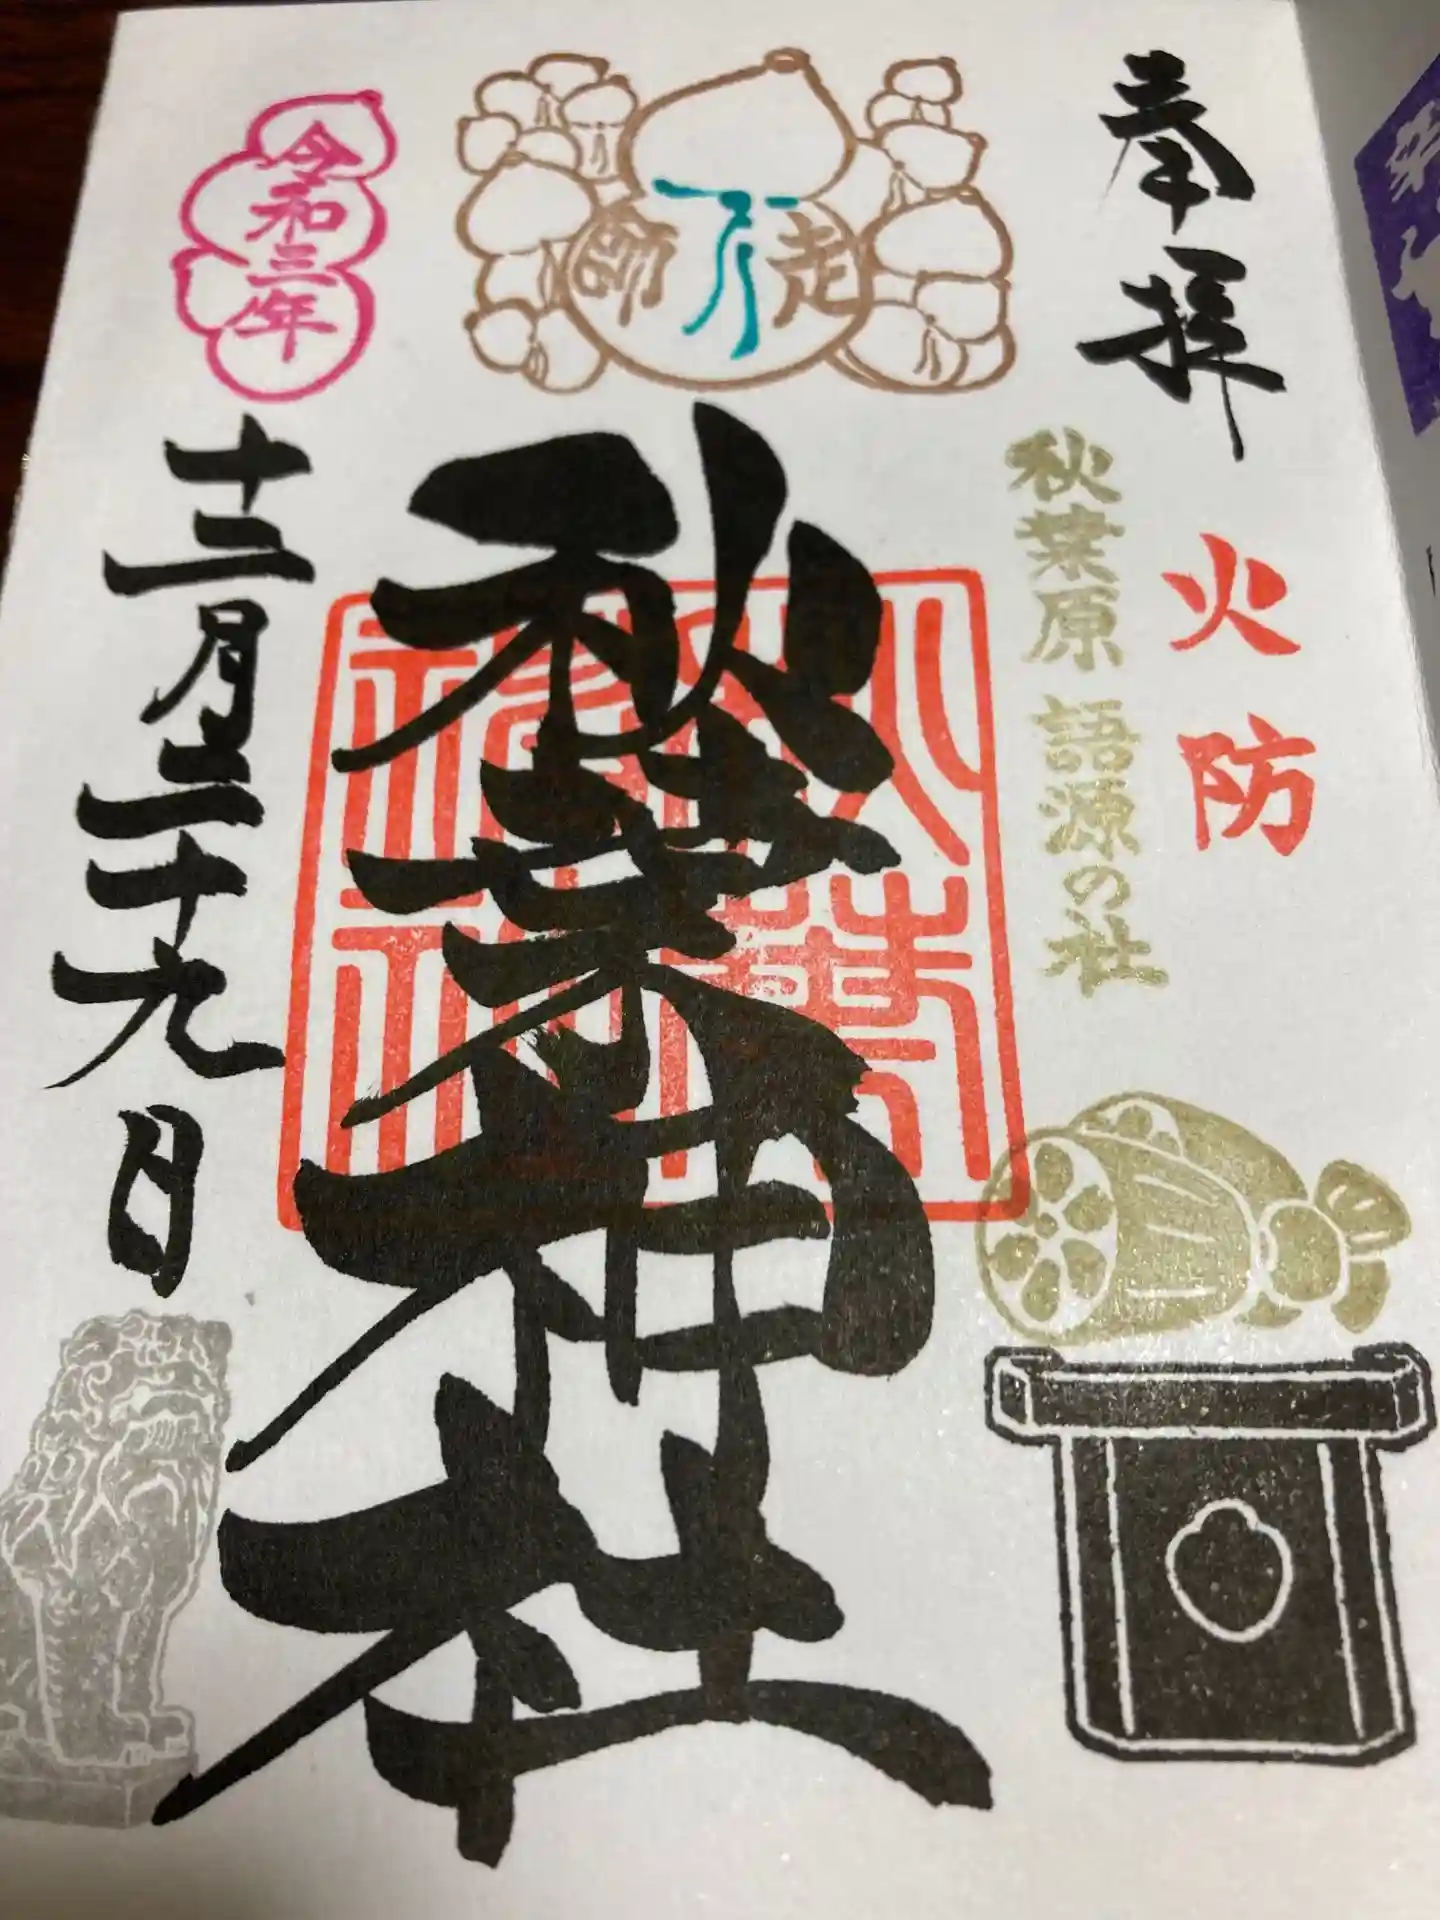 奉拝
火防
秋葉原 語源の社
走
師
秋葉神社
令和三年
十二月二十九日